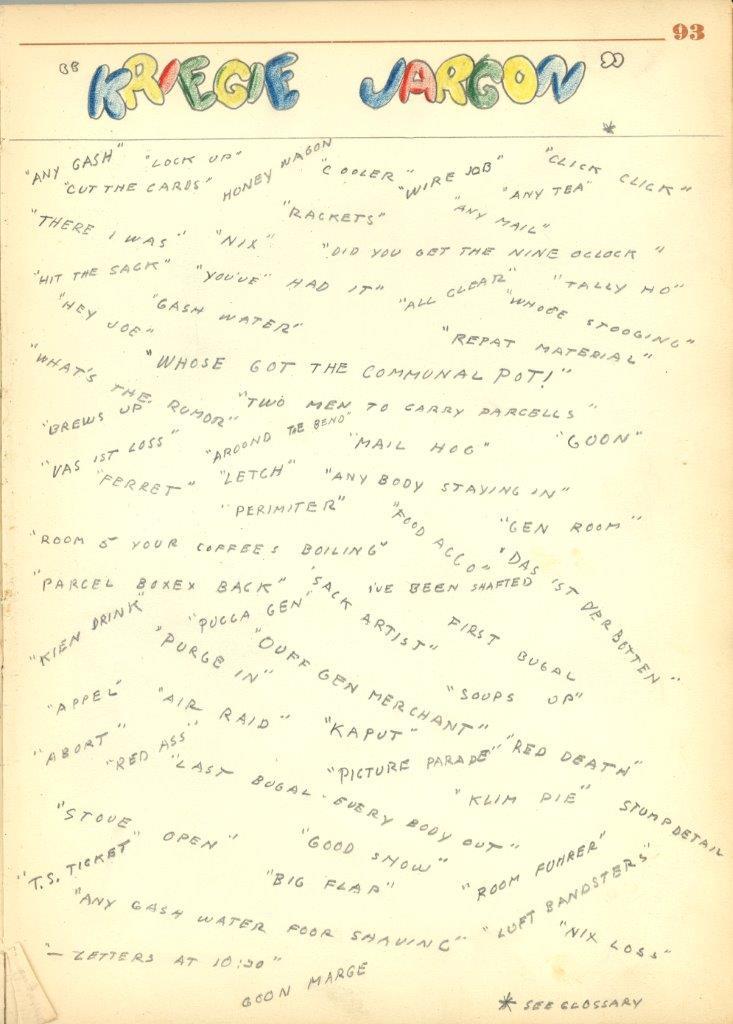 93
"KRIEGIE JARGON"
*
"ANY GASH" "LOCK UP" HONEY WAGON "COOLER" "WIRE JOB" "CLICK CLICK"
"CUT THE CARDS" "ANY TEA"
"RACKETS" "ANY MAIL"
"THERE I WAS" "NIX" "DID YOU GET THE NINE OCLOCK"
"HIT THE SACK" "YOU'VE" HAD IT" "ALL CLEAR" "TALLY HO"
"HEY JOE" "GASH WATER" "WHOSE STOOGING"
"REPAT MATERIAL"
"WHAT'S THE RUMOR" "WHOSE GOT THE COMMUNAL POT!"
"BREWS UP" "TWO MEN TO CARRY PARCELLS"
"VAS IST LOSS" "AROUND THE BEND" "MAIL HOG" "GOON"
"FERRET" "LETCH" "ANY BODY STAYING IN"
"PERIMITER" "FOOD ACCO" "GEN ROOM"
"ROOM 5 YOUR COFFEES BOILING" "DAS IST VERBOTTEN"
"PARCEL BOXEX BACK" "SACK ARTIST" I'VE BEEN SHAFTED
"KIEN DRINK" "PUCCA GEN" FIRST BUGAL
"PURGE IN" "DUFF GEN MERCHANT"
"APPEL" "AIR RAID" "KAPUT" "SOUPS UP"
"ABORT" "RED ASS" "PICTURE PARADE" "RED DEATH"
"LAST BUGAL - EVERY BODY OUT" "KLIM PIE" STUMP DETAIL
"STOVE OPEN" "GOOD SHOW"
"T.S. TICKET" "BIG FLAP" "ROOM FUHRER"
"ANY GASH WATER FOOR SHAVING" "LUFT BANDSTERS"
"NIX LOSS"
"— LETTERS AT 10:30"
GOON MARGE
* SEE GLOSSARY